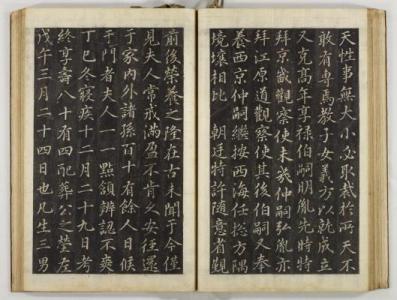 天性事無大小必取裁於所天不
敢有專焉教子女義方以就成立
又克高年尊祿伯嗣明胤先時特
拜京畿觀察使未幾仲嗣弘胤亦
拜江原道觀察使其後伯嗣又奉
養西京仲嗣繼按西海任捴方隅
境壤相比 朝廷特許随意省覲
前後榮養之隆在古未聞于今僅
見夫人常戒滿盈不肯久安往還
于家內外諸孫百十有餘人日候
于門者夫人一一點頷辨認不爽
丁巳冬寢疾十二月二十九日考
終享壽八十有四祔葬公之塋左
戊午三月二十四日也凡生三男